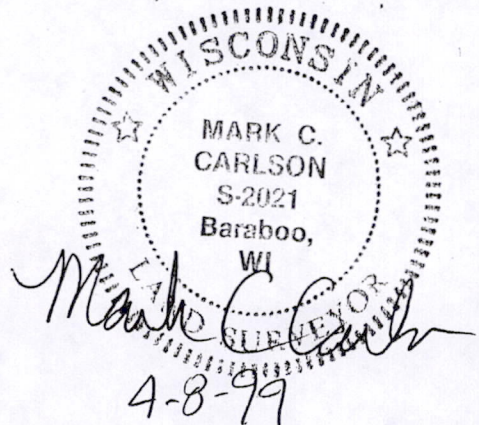 WISCONSIN
MARK C.
CARLSON
S-2021
Baraboo,
WI
LAND SURVEYOR
Mark C Carlson
4-8-99